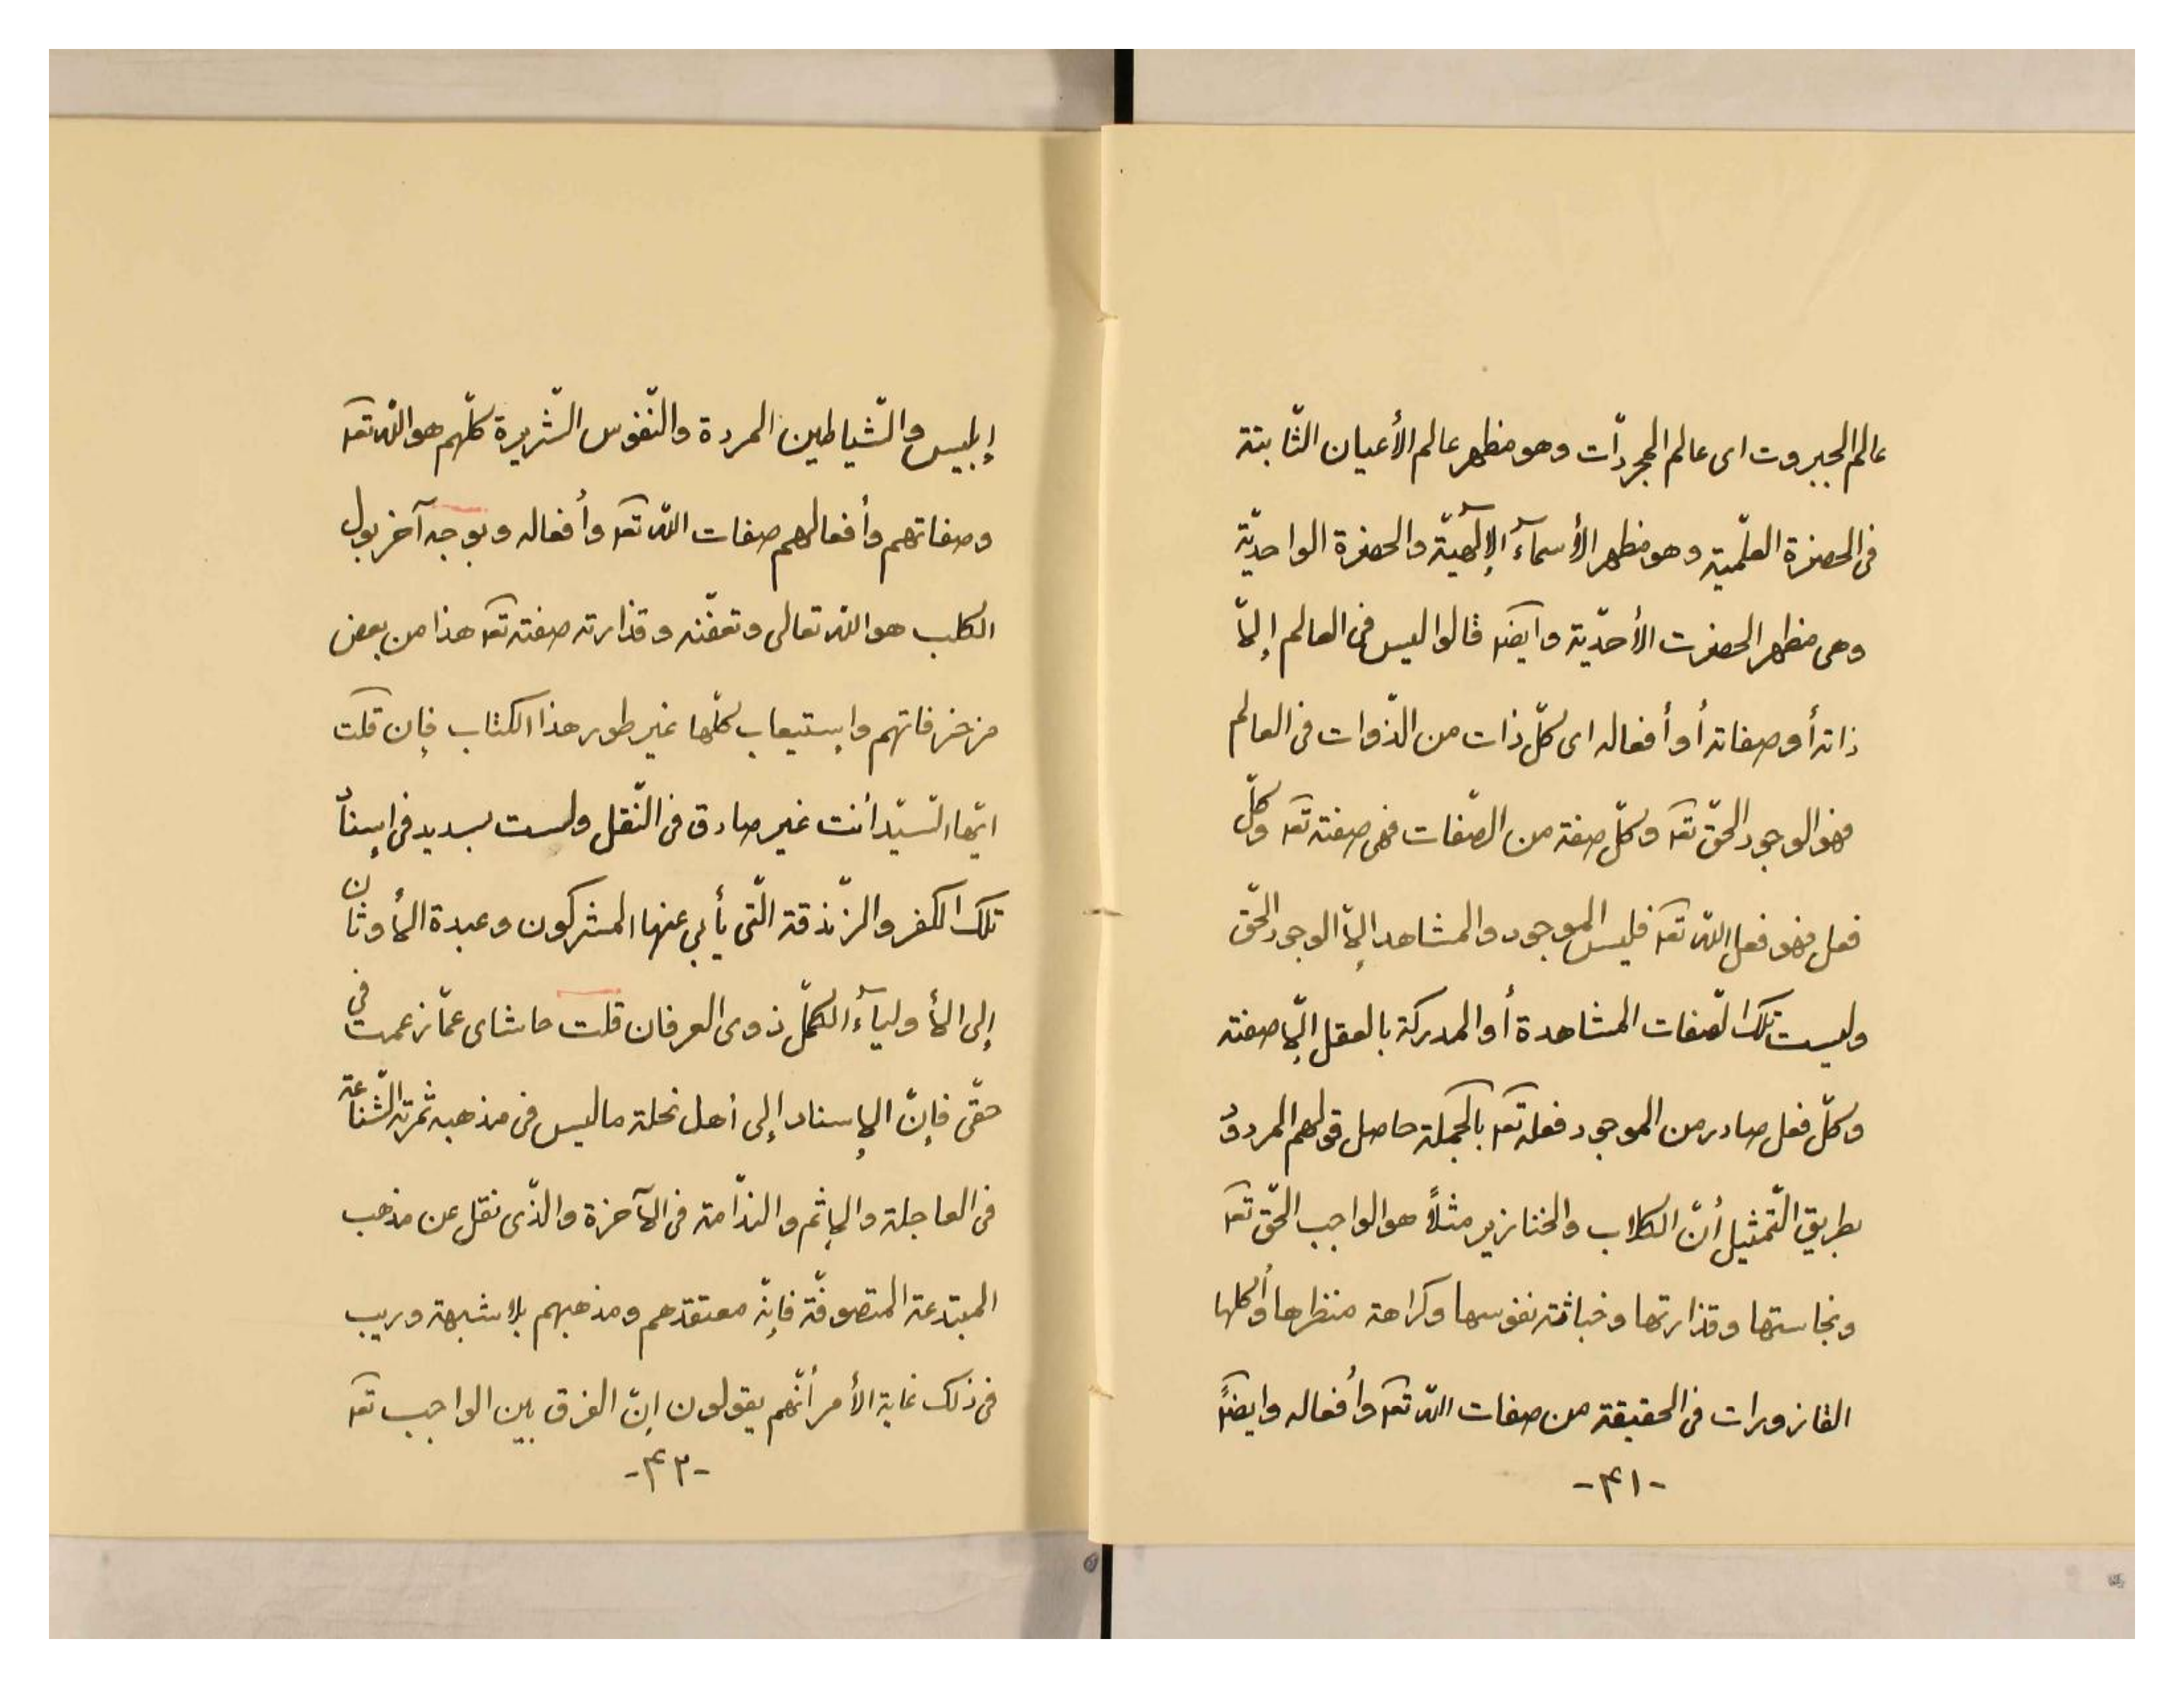 عالم الجبروت اى عالم المجردّات وهو مظهر عالم الأعيان الثّابتة
فى الحضرة العلّمية وهو مظهر الأسمآء الإلٓهيّة والحضرة الواحديّة
وهى مظهر الحضرت الأحدّية وايضا قالوا ليس فى العالم إلاّ
ذاته أو صفاته أو أفعاله اى كلّ ذات من الذّوات فى العالم
فهو الوجود الحقّ تعه وكلّ صفة من الصّفات فهى صفته تعه وكلّ
فعل فهو فعل اللّه تعه فليس الموجود والمشاهد إلاّ الوجود الحقّ
وليست تلك الصّفات المشاهدة أو المدركة بالعقل إلاّ صفته
وكلّ فعل صادر من الموجود فعله تعه بالجملة حاصل قولهم المردود
بطريق التّمثيل أنّ الكلاب والخنازير مثلاً هو الواجب الحّق تعه
ونجاستها وقذارتها وخباثة نفوسها وكراهة منظرها وأكلها
القازورات فى الحقيقة من صفات اللّه تعه وأفعاله وايضاً
-۴۱-
إبليس والشّياطين المردة والنّفوس الشّريرة كلّهم هو اللّه تعه
وصفاتهم وأفعالهم صفات اللّه تعه وأفعاله وبوجه آخر بول
الكلب هو اللّه تعالى وتعفّنه وقذارته صفته تعه هذا من بعض
مزخرفاتهم وإستيعاب كلّها غير طور هذا الكتاب فإن قلت
ايّها السّيّد أنت غير صادق فى النّقل ولست بسديد فى إسناد
تلك الكفر والزّندقة الّتى يأبى عنها المشركون وعبدة الأوثان
إلى الأوليآء الكمّل ذوى العرفان قلت حاشاى عمّا زعمت فى
حقّى فإنّ الإسناد إلى أهل نحلة ما ليس فى مذهبه ثمرته الشّناعة
فى العاجلة والإثم والندّامة فى الآخرة والذّى نقل عن مذهب
المبتدعة المتصوفّة فإنّه معتقدهم ومذهبهم بلا شبهة وريب
فى ذلك غاية الأمر أنّهم يقولون إنّ الفرق بين الواجب تعه
-۴۲-